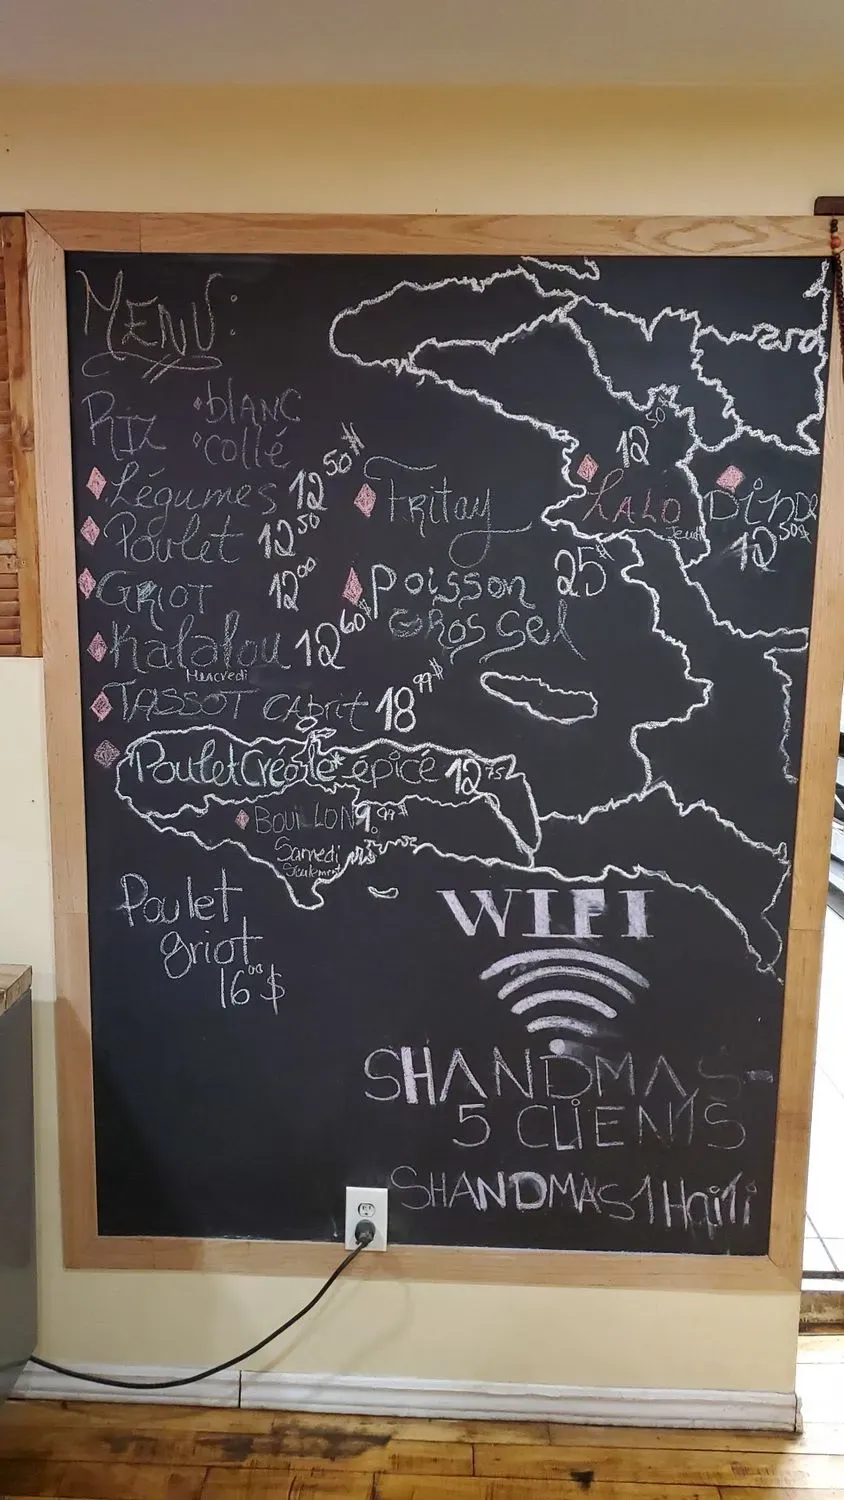 MENU:
Riz
blanc
collé
Légumes 12 50$
Poulet 12 50
GRIOT 12 00
Kalalou 12 60$
Mercredi
TASSOT CABrit 18 99$
Poulet Créole épicé 12 75
BOUILLON 9. 99$
Samedi
Seulement
Poulet
griot
16 00 $
FRitay
Poisson 25$
GROS Sel
12 50$
LALO
Jeudi
Dinde
12 50$
WIFI
SHANDMAS-
5 CLIENTS
SHANDMAS1Haiti